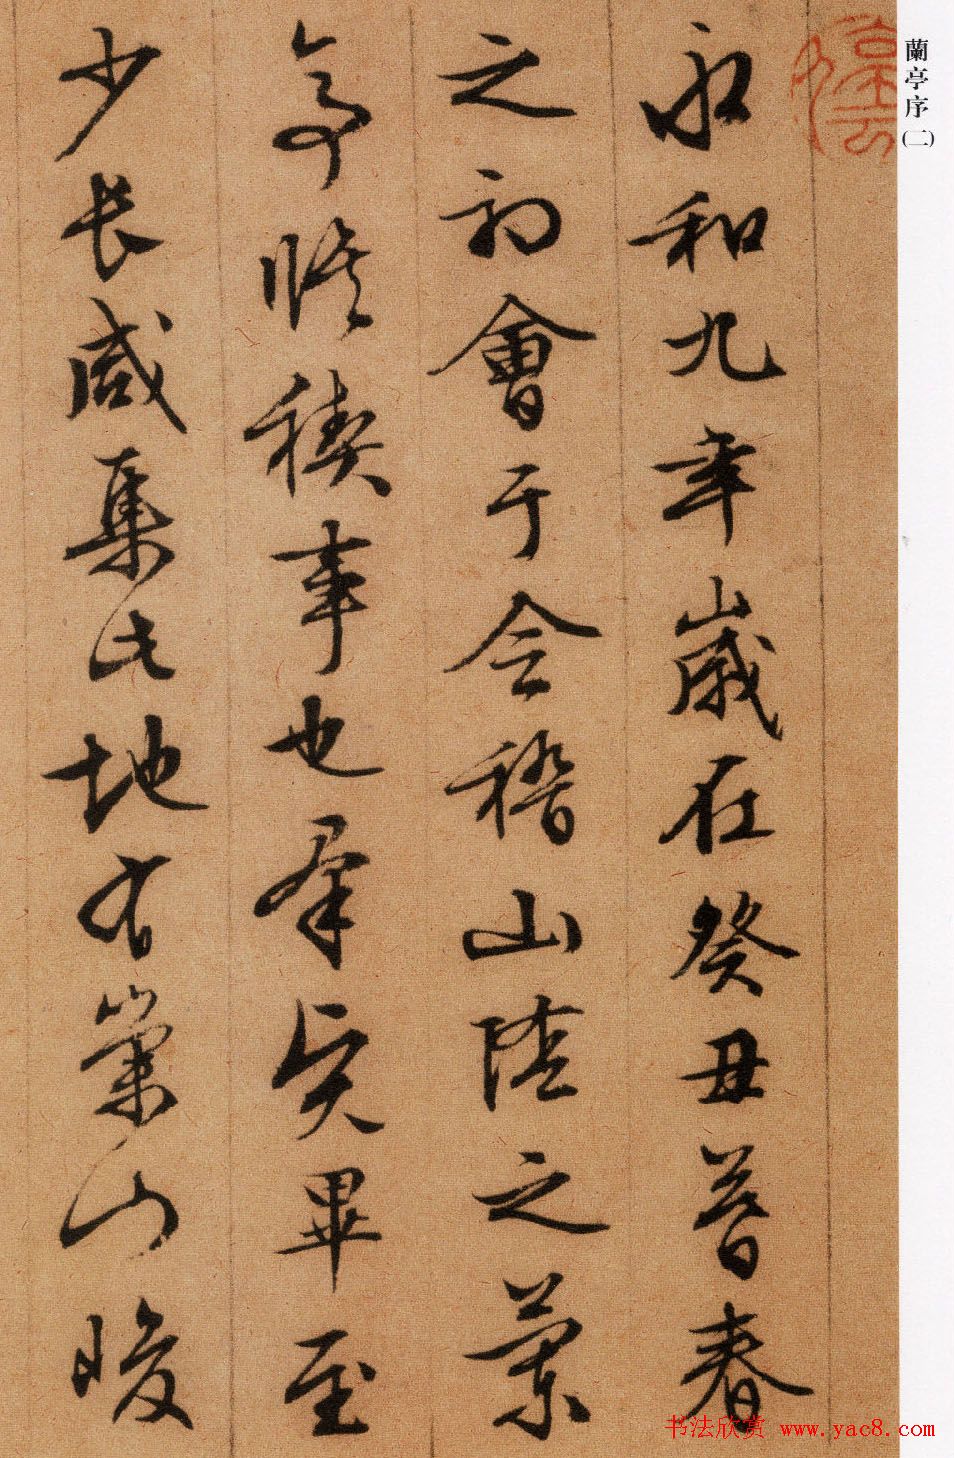 蘭亭序(二)
永和九年歲在癸丑暮春
之初會于会稽山陰之蘭
亭脩禊事也群賢畢至
少長咸集此地有崇山峻
书法欣赏 www.yac8.com